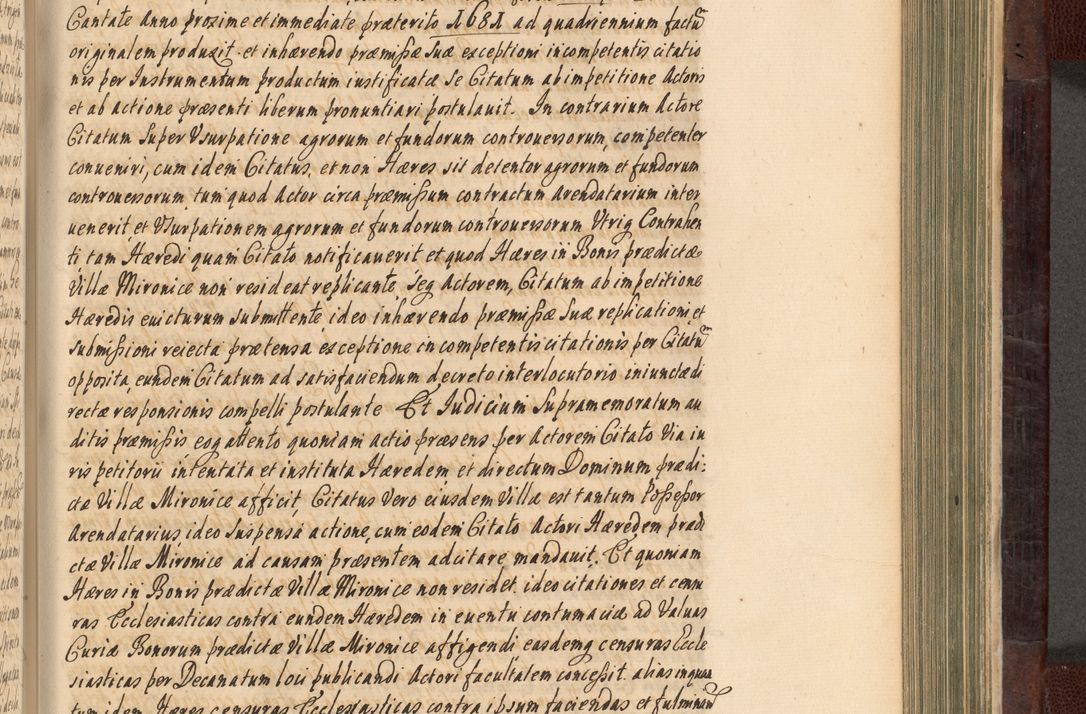 Cantate Anno proxime et immediate præterito 1681 ad quadriennium factū
originalem produxit et inhærendo præmißæ Suæ exceptioni incompetentis citatio
nis per Instrumentum productum iustificatæ Se Citatum ab impetitione Actoris
et ab actione præsenti liberum pronuntiari postulauit. In contrarium Actore
Citatum Super Vsurpatione agrorum et fundorum controuersorum, competenter
conueniri, cum idem Citatus, et non Hæres sit detentor agrorum et fundorum
controuersorum, tum quod Actor circa præmißum contractum Arendatarium inter
uenerit et Vsurpationem agrorum et fundorum controuersorum Vtriq Contrahen
ti tam Hæredi quam Citato notificauerit et quod Hæres in Bonis prædictæ
Villæ Mironice non resideat replicante Seq Actorem, Citatum ab impetitione
Hæredis euicturum submittente ideo inhærendo præmißæ Suæ replicationi et
submißioni reiecta prætensa exceptione incompetentis citationis per Citatū
opposita, eundem Citatum ad satisfaciendum decreto interlocutorio iniunctæ di
rectæ responsionis compelli postulante Et Iudicium Supramemoratum au
ditis præmißis eoq attento quoniam actio præsens per Actorem Citato Via iu
ris petitorii intentata et instituta Hæredem et directum Dominum prædi:
ctæ Villæ Mironice afficit, Citatus Vero eiusdem Villæ est tantum Poßeßor
Arendatarius ideo Suspensa actione, cum eodem Citato Actori Hæredem prædi
ctæ Villæ Mironice ad causam præsentem adcitare mandauit. Et quoniam
Hæres in Bonis prædictæ Villæ Mironice non residet ideo citationes et censu
ras Ecclesiasticas contra eundem Hæredem in euentu contumaciæ ad Valuas
Curiæ Bonorum prædictæ Villæ Mironice affigendi easdemq censuras Eccle
siasticas per Decanatum loci publicandi Actori facultatem conceßit. alias inquan
tum idem Hæres censuras Ecclesiasticas contra ipsum faciendas et fulminand